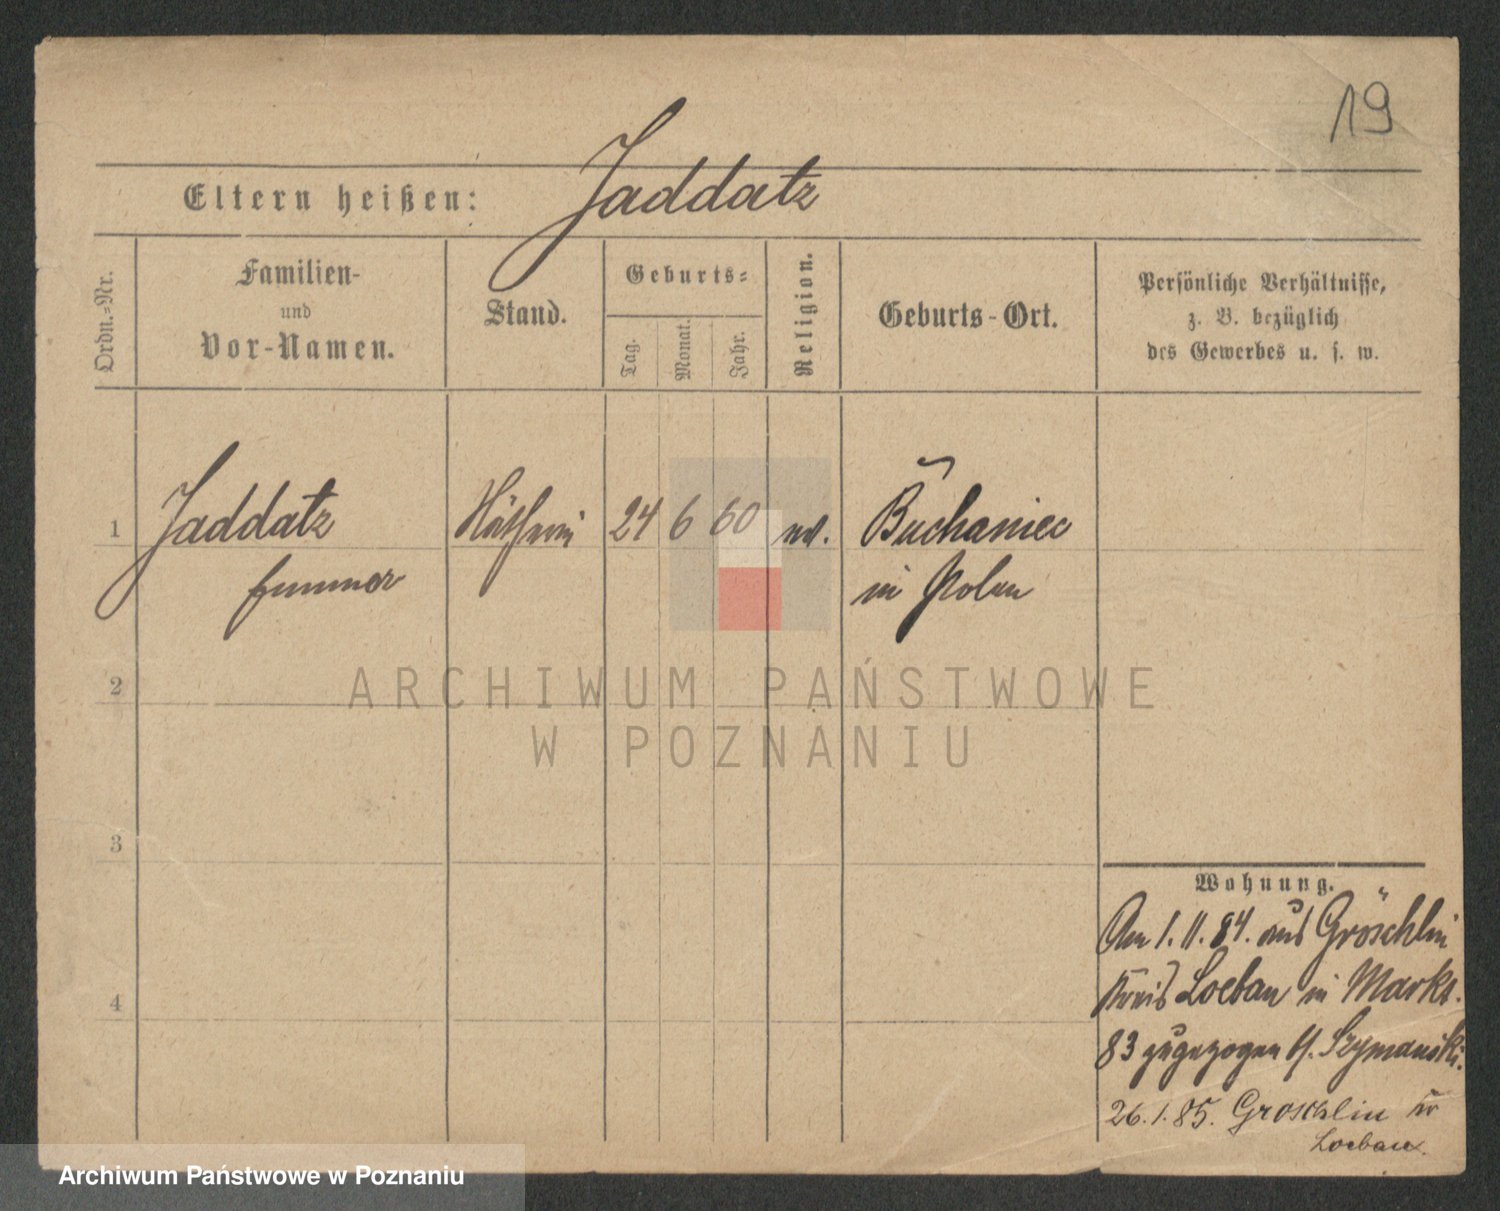 19
Eltern heißen: Jaddatz
Ordn.-Nr.
Familien-
und
Vor-Namen.
Stand.
Geburts-
Tag.
Monat.
Jahr.
Religion.
Geburts-Ort.
Persönliche Verhältnisse,
z. B. bezüglich
des Gewerbes u. s. w.
1 Jaddatz 24 6 60 Buchaniec
in Polen
2
ARCHIWUM PAŃSTWOWE
W POZNANIU
3
4
Wohnung.
Am 1. 11. 84. aus Gröschlin
Kreis Loebau in Markt.
83 zugezogen b/. Szymanski.
26. 1. 85. Groschlin Kr
Loebau.
Archiwum Państwowe w Poznaniu